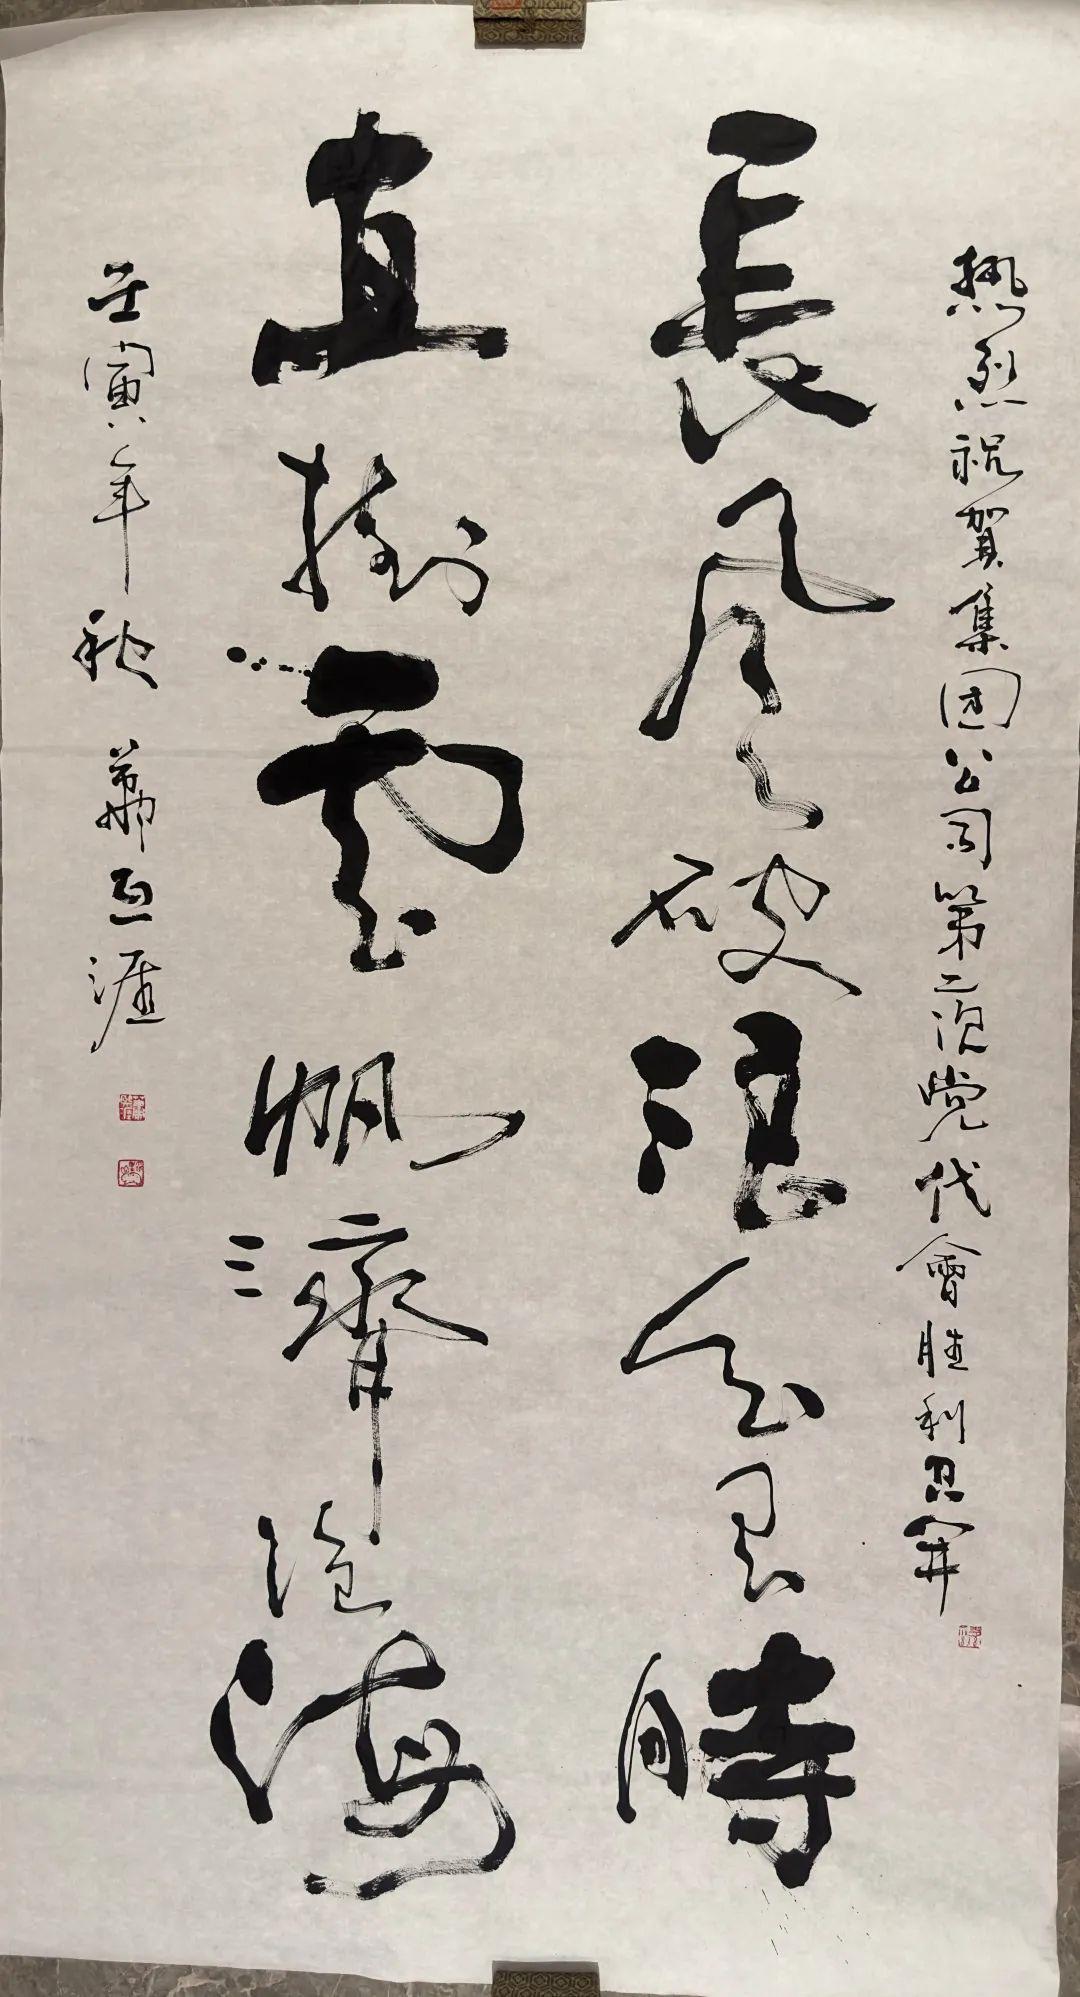 热烈祝賀集团公司第二次党代會胜利召開
長風破浪会有時
直掛雲帆濟滄海
壬寅年秋